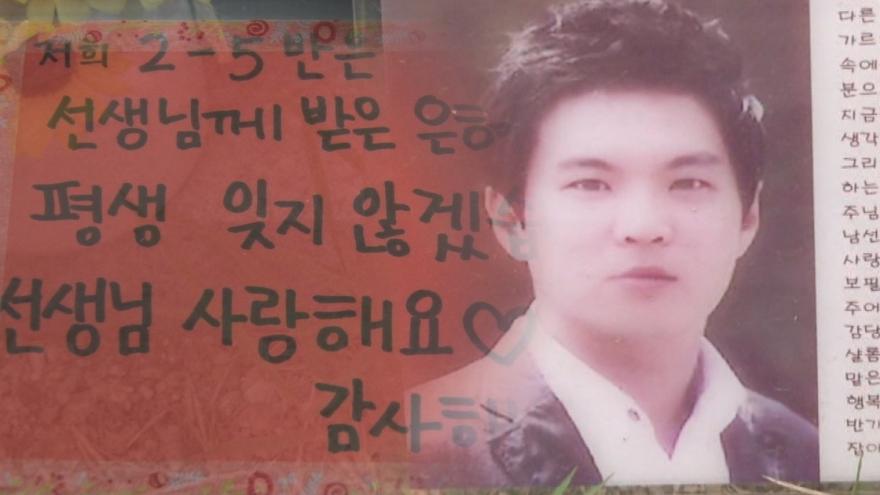 저희 2-5반은
선생님께 받은
평생 잊지
선생님 사랑해요♡
다른
가르
속에
분으
지금
생각
그리
하는
주님
남선
사랑
보필
주어
감당
샬롬
맡은
행복
반기
잡아